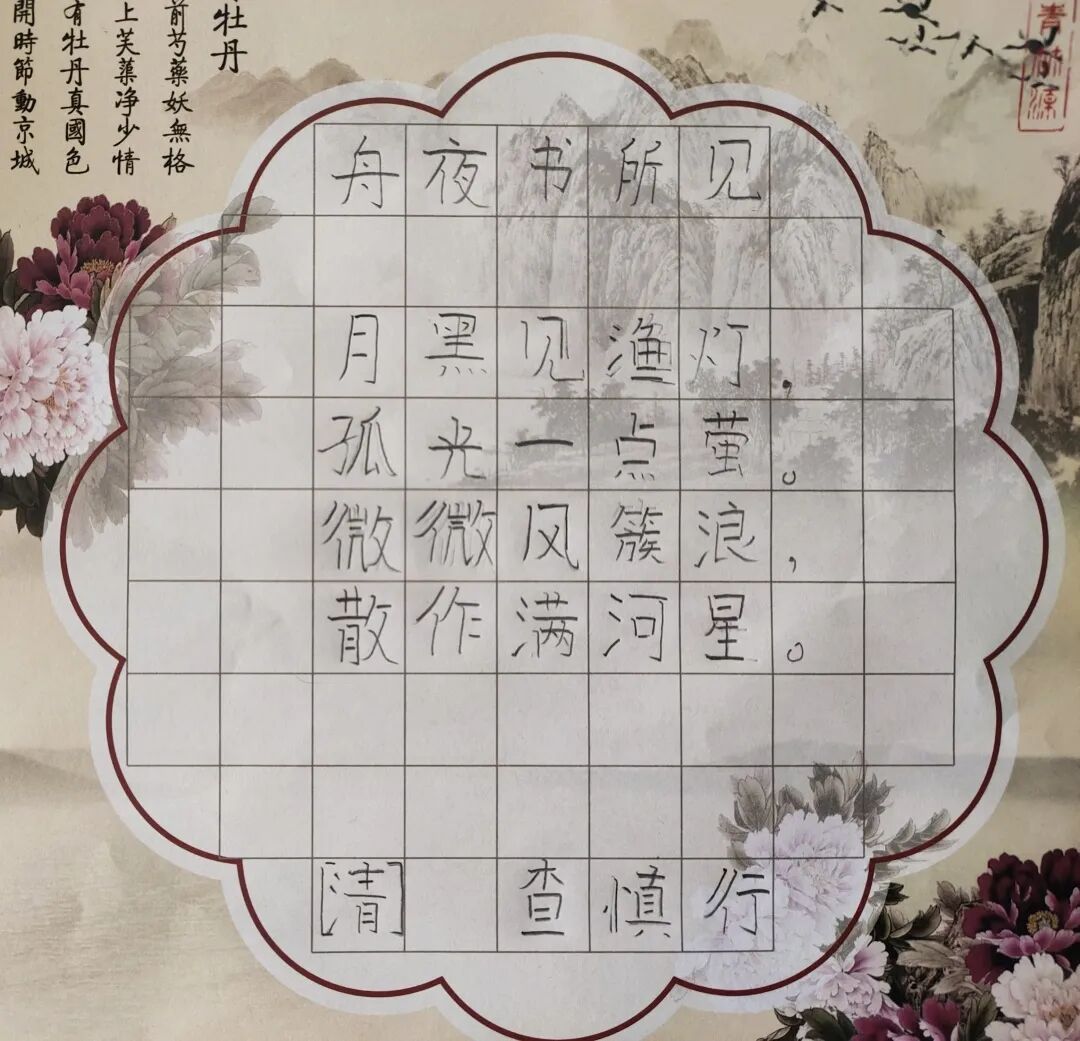 牡丹
前芍藥妖無格
上芙蕖净少情
有牡丹真國色
開時節動京城
舟夜书所见
月黑见渔灯，
孤光一点萤。
微微风簇浪，
散作满河星。
[清] 查慎行